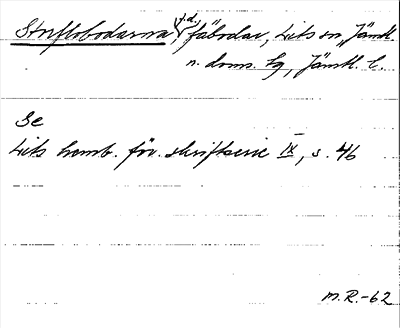 Striflobodarna, f.d. fäbodar, Lits sn, Jämtl.
n. doms. lg, Jämtl. l.
Se
Lits hemb. för. skriftserie IX, s. 46
M.R.-62